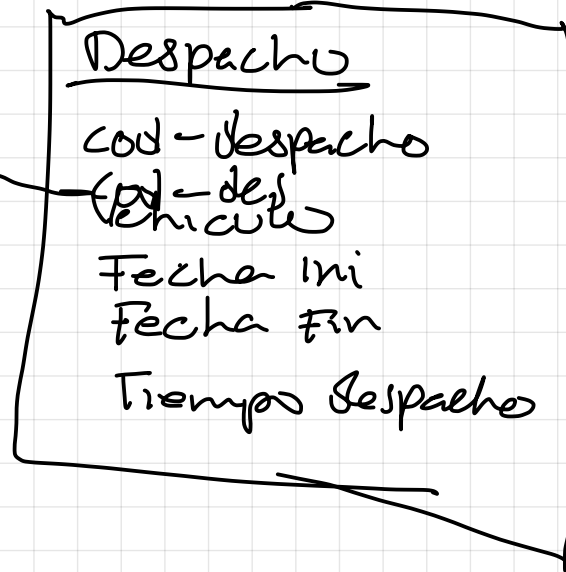 Despacho
cod-despacho
cod-des
Vehiculo
Fecha Ini
Fecha Fin
Tiempo despacho